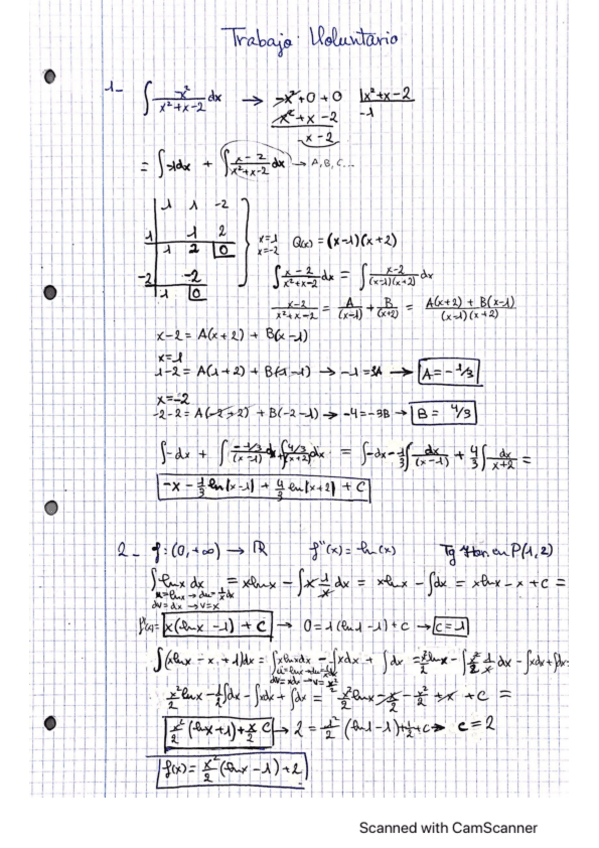 Trabajo Voluntario
1- ∫ -x²/(x²+x-2) dx → -x²+0+0 |x²+x-2
x²+x-2 -1
x-2
= ∫-1dx + ∫ (x-2)/(x²+x-2) dx → A, B, C...
1 1 -2
1 1 2
1 2 0
-2 -2
1 0
x=1
x=-2
Q(x) = (x-1)(x+2)
∫ (x-2)/(x²+x-2) dx = ∫ (x-2)/((x-1)(x+2)) dx
(x-2)/(x²+x-2) = A/(x-1) + B/(x+2) = (A(x+2) + B(x-1))/((x-1)(x+2))
x-2 = A(x+2) + B(x-1)
x=1
1-2 = A(1+2) + B(1-1) → -1=3A → A=-1/3
x=-2
-2-2 = A(-2+2) + B(-2-1) → -4=-3B → B = 4/3
∫-dx + ∫ (-1/3)/(x-1) dx + ∫ (4/3)/(x+2) dx = ∫-dx - 1/3 ∫ dx/(x-1) + 4/3 ∫ dx/(x+2) =
-x - 1/3 ln|x-1| + 4/3 ln|x+2| + C
2- f: (0,+∞) → ℝ f''(x) = ln(x) Tg Hor. en P(1,2)
∫ lnx dx = xlnx - ∫ x 1/x dx = xlnx - ∫dx = xlnx - x + C =
u=lnx → du=1/x dx
dv=dx → v=x
f'(x)= x(lnx-1) + C → 0=1(ln1-1)+C → C=1
∫(xlnx - x + 1)dx = ∫xlnxdx - ∫xdx + ∫dx = x²/2 lnx - ∫ x²/2 1/x dx - ∫xdx + ∫dx=
u=lnx→du=1/x dx
dv=xdx→v=x²/2
x²/2 lnx - 1/2 ∫dx - ∫xdx + ∫dx = x²/2 lnx - x/2 - x²/2 + x + C =
x²/2 (lnx+1)+x/2 C → 2 = 1²/2 (ln1-1)+1/2+C → C=2
f(x)= x²/2 (lnx-1)+2
Scanned with CamScanner